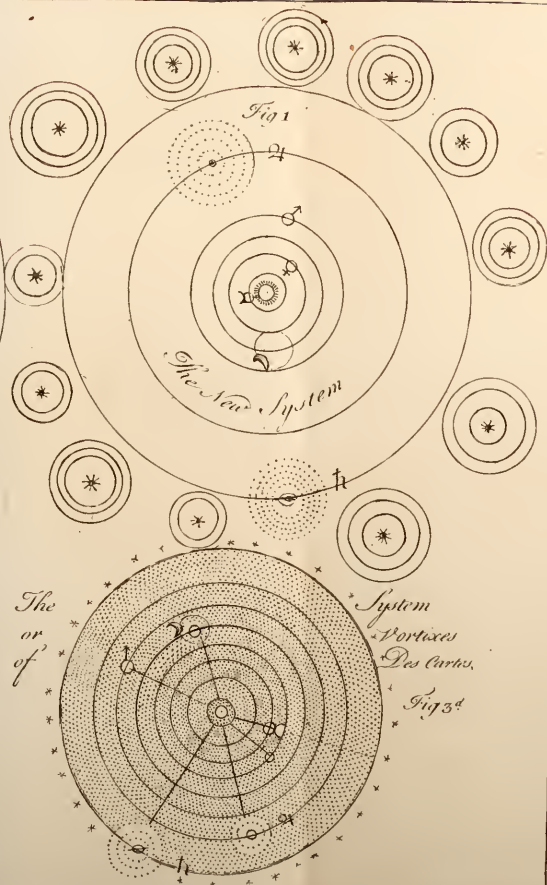 Fig 1
♃
♂
♀
☿
☽
The New System
♄
The System
or Vortixes
of Des Cartes.
Fig 3d
♂
♃
♄